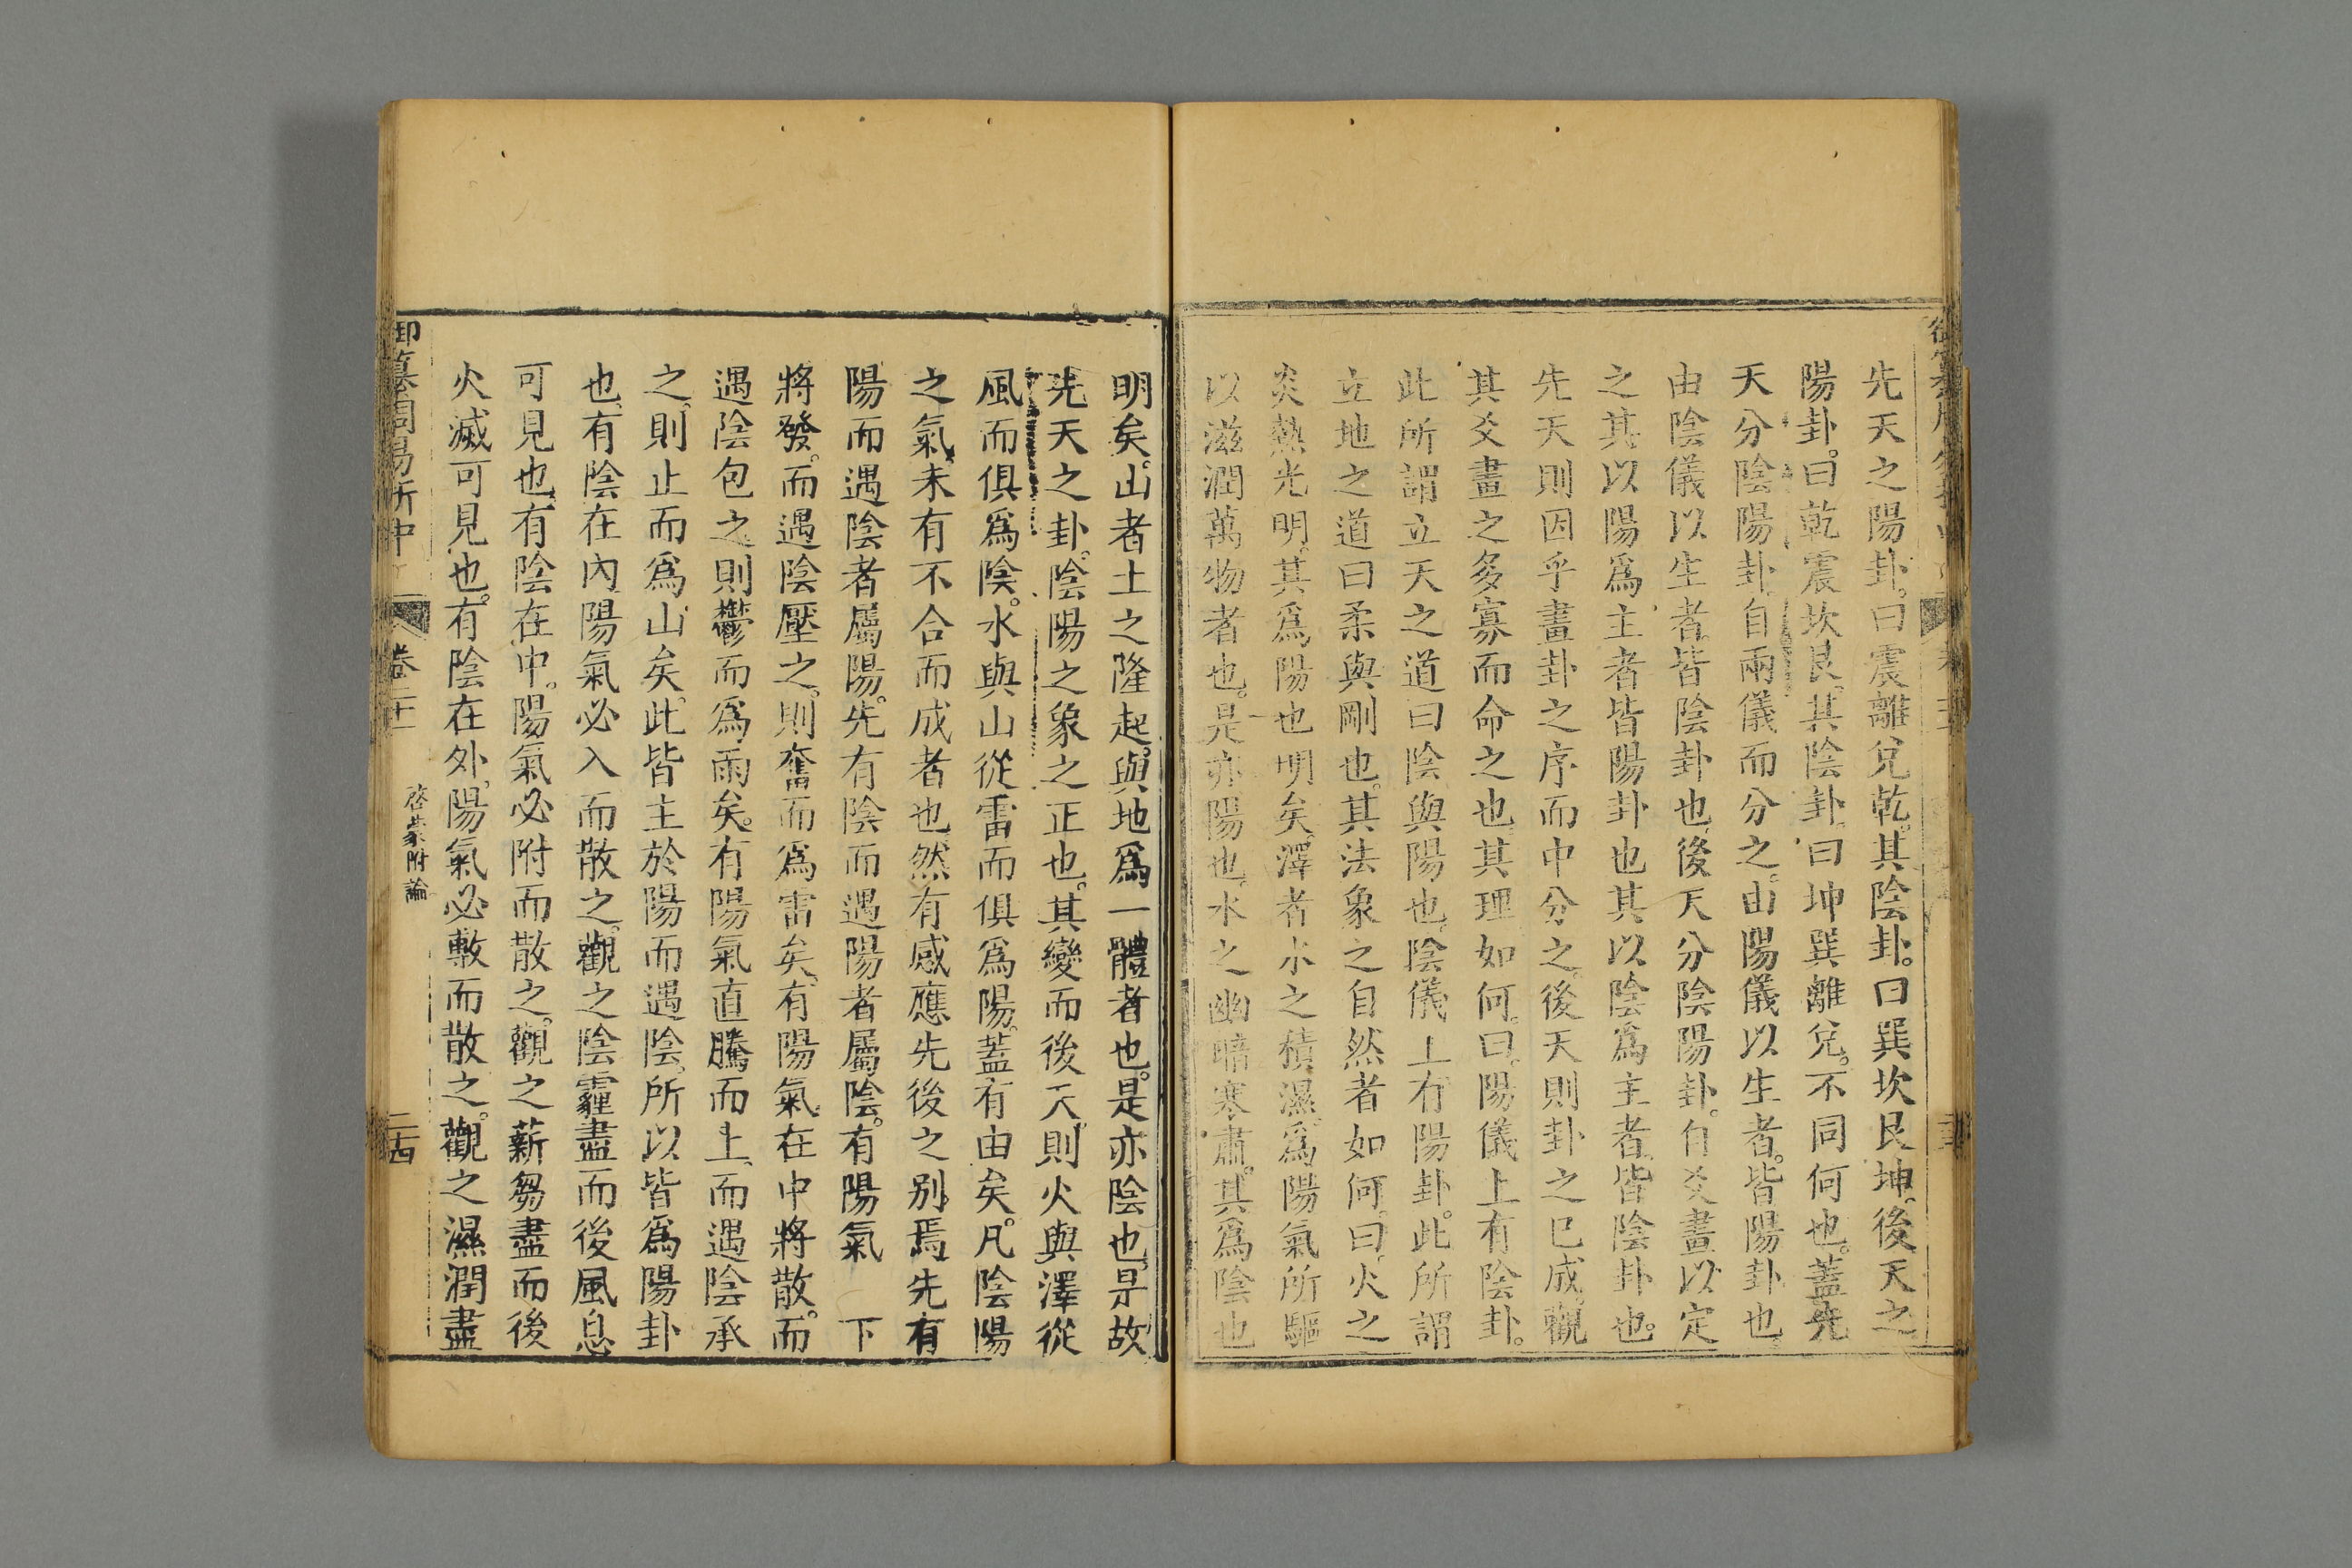 先天之陽卦。曰震離兌乾。其陰卦。曰巽坎艮坤。後天之
陽卦。曰乾震坎艮。其陰卦。曰坤巽離兌。不同何也。蓋先
天分陰陽卦。自兩儀而分之。由陽儀以生者。皆陽卦也。
由陰儀以生者。皆陰卦也。後天分陰陽卦。自爻畫以定
之。其以陽爲主者。皆陽卦也。其以陰爲主者。皆陰卦也。
先天則因乎畫卦之序而中分之。後天則卦之已成。觀
其爻畫之多寡而命之也。其理如何。曰。陽儀上有陰卦。
此所謂立天之道曰陰與陽也。陰儀上有陽卦。此所謂
立地之道曰柔與剛也。其法象之自然者如何。曰。火之
炎熱光明。其爲陽也明矣。澤者水之積濕。爲陽氣所驅
以滋潤萬物者也。是亦陽也。水之幽暗寒肅。其爲陰也
明矣。山者土之隆起。與地爲一體者也。是亦陰也。是故
先天之卦。陰陽之象之正也。其變而後天。則火與澤從
風而俱爲陰。水與山從雷而俱爲陽。蓋有由矣。凡陰陽
之氣。未有不合而成者也。然有感應先後之別焉。先有
陽而遇陰者屬陽。先有陰而遇陽者屬陰。有陽氣 下
將發。而遇陰壓之。則奮而爲雷矣。有陽氣在中將散。而
遇陰包之。則鬱而爲雨矣。有陽氣直騰而上。而遇陰承
之。則止而爲山矣。此皆主於陽而遇陰。所以皆爲陽卦
也。有陰在內。陽氣必入而散之。觀之陰霾盡而後風息
可見也。有陰在中。陽氣必附而散之。觀之薪芻盡而後
火滅可見也。有陰在外。陽氣必敷而散之。觀之濕潤盡
御纂周易折中
卷二十一
啓蒙附論
二十四